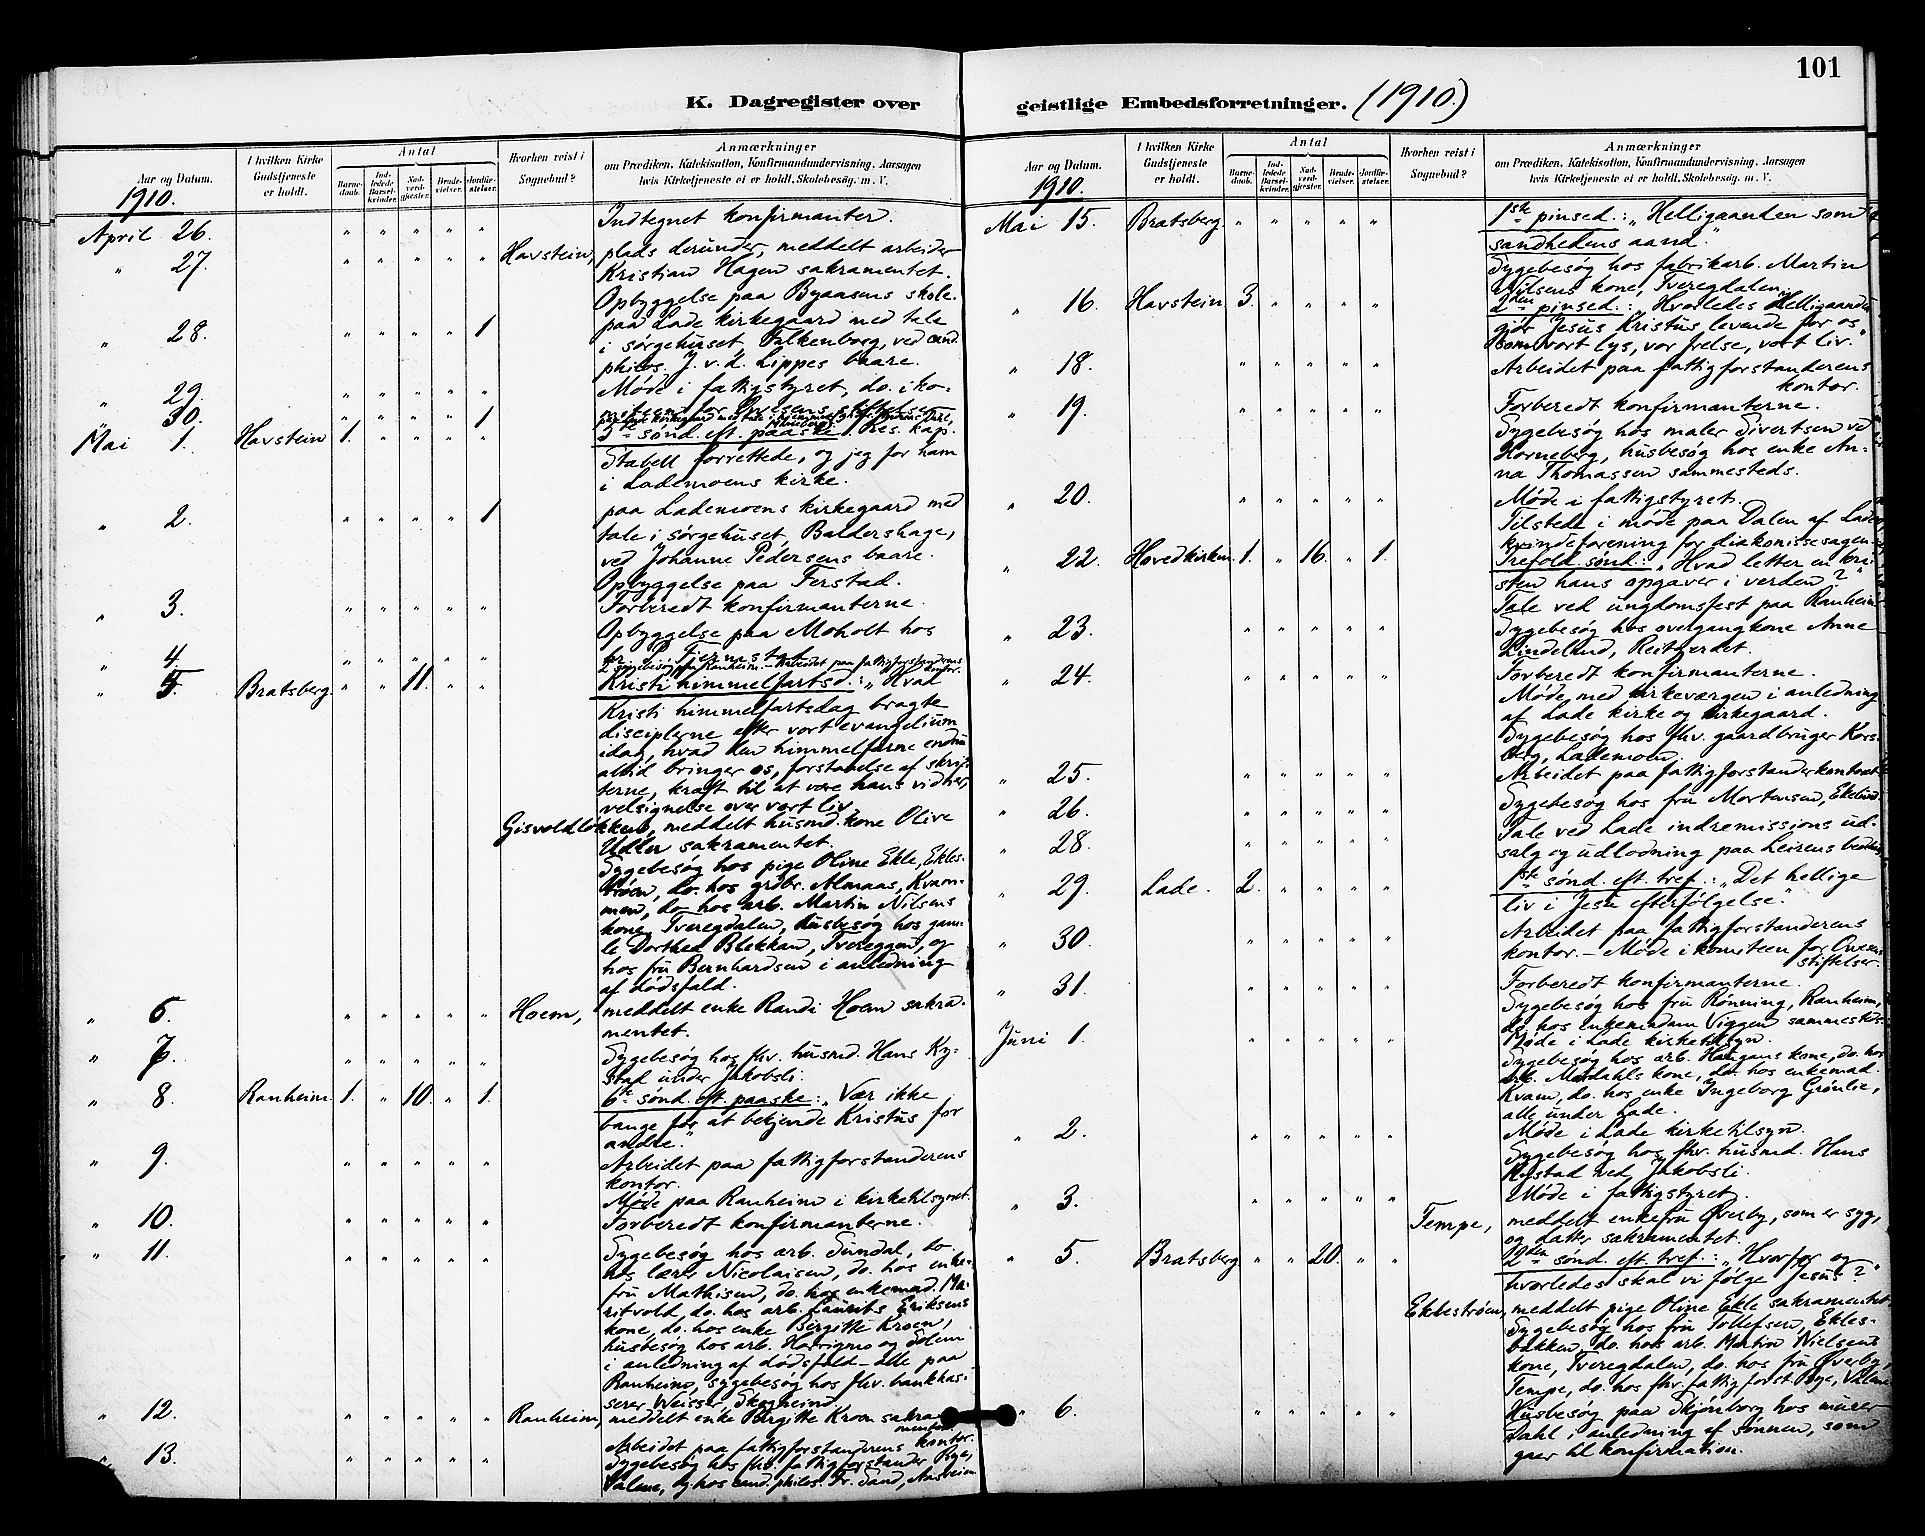 101
K. Dagregister over geistlige Embedsforretninger. (1910.)
Aar og Datum.
1910.
I hvilken Kirke
Gudstjeneste
er holdt.
Antal
Barne-
daab.
Ind-
ledede
Barsel-
kvinder.
Nad-
verd-
gjester.
Brude-
vielser.
Jordfæ-
stelser.
Hvorhen reist i
Sognebud?
Anmærkninger
om Prædiken, Katekisation, Konfirmandundervisning, Aarsagen
hvis Kirketjeneste ei er holdt, Skolebesøg, m. V.
April 26. " " " " " Indtegnet konfirmanter.
" 27. " " " " " Havstein, plads derunder, meddelt arbeider
Kristian Hagen sakramentet.
Opbyggelse paa Byaasens skole.
" 28. " " " " 1 paa Lade kirkegaard med tale
i sørgehuset Falkenborg, ved cand.
philos. J. v. d. Lippes baare.
" 29. " " " " " Møde i fattigstyret, do. i ko-
" 30. " " " " 1
Mai 1. Havstein 1. " " " " 3die sønd. eft. paaske. Res. kap.
Stabell forrettede, og jeg for ham
i Lademoens kirke.
" 2. " " " " 1 paa Lademoens kirkegaard med
tale i sørgehuset, Baldershage,
ved Johanne Pedersens baare.
Opbyggelse paa Ferstad.
" 3. " " " " " Forberedt konfirmanterne.
Opbyggelse paa Moholt hos
" 4. " " " " " 2 sygebesøg paa Ranheim. - Arbeidet paa fattigforstanderens kontor.
" 5. Bratsberg. " " 11. " " Kristi himmelfartsd.: "Hvad
Kristi himmelfartsdag bragte
disciplerne efter vort evangelium
idag, hvad den himmelfarne endnu
altid bringer os, forstaaelse af skrif-
terne, kraft til at være hans vidner,
velsignelse over vort liv.
Gisvoldløkken, meddelt husmd. kone Olive
Udler sakramentet.
Sygebesøg hos pige Oline Ekle, Ekles-
trøen, do. hos grdbr. Almaas, Kvam-
men, do. hos arb. Martin Nilsens
kone, Tveregdalen, husbesøg hos gam-
le Dorthea Blekkan, Tvereggen, og
hos fru Bernhardsen i anledning
af dødsfald.
" 6. " " " " " Hoem, meddelt enke Randi Hoem sakra-
mentet.
" 7. " " " " " Sygebesøg hos fhv. husmd. Hans Ky-
stad under Jakobsli.
" 8. Ranheim. 1. " 10. " 1. 6te sønd. eft. paaske: "Vær ikke
bange for at bekjende Kristus for
andre."
" 9. " " " " " Arbeidet paa fattigforstanderens
kontor.
Møde paa Ranheim i kirketilsynet.
" 10. " " " " " Forberedt konfirmanterne.
" 11. " " " " " Sygebesøg hos arb. Sundal, do.
hos lærer Nicolaisen, do. hos enke-
fru Mathisen, do. hos enkemad. Ma-
ritvold, do. hos arb. Laurits Eriksens
kone, do. hos enke Birgitte Kroen,
husbesøg hos arb. Havigmo og Solem
i anledning af dødsfald - alle paa
Ranheim, sygebesøg hos fhv. bankkas-
serer Weisser, Skogheim.
" 12. " " " " " Ranheim, meddelt enke Birgitte Kroen sakra-
mentet.
" 13. " " " " " Arbeidet paa fattigforstanderens kontor.
Sygebesøg hos fhv. fattigforstander Pye,
Valene, og hos cand. philos. Fr. Sand, Ansheim
Aar og Datum.
1910.
I hvilken Kirke
Gudstjeneste
er holdt.
Antal
Barne-
daab.
Ind-
ledede
Barsel-
kvinder.
Nad-
verd-
gjester.
Brude-
vielser.
Jordfæ-
stelser.
Hvorhen reist i
Sognebud?
Anmærkninger
om Prædiken, Katekisation, Konfirmandundervisning, Aarsagen
hvis Kirketjeneste ei er holdt, Skolebesøg, m. V.
Mai 15. Bratsberg. " " " " " 1ste pinsed.: "Helligaanden som
sandhedens aand."
Sygebesøg hos fabrikarb. Martin
Nilsens kone, Tveregdalen.
" 16. Havstein 3. " " " " 2den pinsed.: "Hvorledes Helligaanden
gjør Jesus Kristus levende for os
som vort lys, vor frelse, vort liv."
" 18. " " " " " Arbeidet paa fattigforstanderens
kontor.
" 19. " " " " " Forberedt konfirmanterne.
Sygebesøg hos maler Sivertsen ved
Korneberg, husbesøg hos enke An-
na Thomassen sammesteds.
" 20. " " " " " Møde i fattigstyret.
Tilstede i møde paa Dalen af Lade
kvindeforening for diakonissesagen.
" 22. Hovedkirken 1. " 16. " 1. Trefold. sønd.: "Hvad letter en kri-
sten hans opgaver i verden?"
Tale ved ungdomsfest paa Ranheim.
" 23. " " " " " Sygebesøg hos overgangkone Anne
Lindelund, Reitgjerdet.
" 24. " " " " " Forberedt konfirmanterne.
Møde med kirkeværgen i anledning
af Lade kirke og kirkegaard.
Sygebesøg hos fhv. gaardbruger Kors-
berg, Lademoen.
" 25. " " " " " Arbeidet paa fattigforstanderkontoret
" 26. " " " " " Sygebesøg hos fru Mortensen, Eklund.
" 28. " " " " " Tale ved Lade indremissions ud-
salg og udlodning paa Leirens
" 29. Lade. 2. " " " " 1ste sønd. eft. tref.: "Det hellige
liv i Jesu efterfølgelse."
" 30. " " " " " Arbeidet paa fattigforstanderens
kontor. - Møde i komiteen for Owesens
stiftelser.
" 31. " " " " " Forberedt konfirmanterne.
Sygebesøg hos fru Rønning, Ranheim,
do. hos enkemadam Viggen sammesteds.
Juni 1. " " " " " Møde i Lade kirketilsyn.
Sygebesøg hos arb. Haugans kone, do. hos
arb. Mordahls kone, do. hos enkemad.
Kvam, do. hos enke Ingeborg Grønlie,
alle under Lade.
" 2. " " " " " Møde i Lade kirketilsyn.
Sygebesøg hos fhv. husmd. Hans
Kystad ved Jakobsli.
" 3. " " " " " Møde i fattigstyret.
Tempe, meddelt enkefru Øverby, som er syg,
og datter sakramentet.
" 5. Bratsberg " " 20. " " 2den sønd. eft. tref.: "Hvorfor og
hvorledes skal vi følge Jesus?"
Eklestrøen, meddelt pige Oline Ekle sakramentet.
Sygebesøg hos fru Tollefsen, Ekles-
bakken, do. hos arb. Martin Nielsens
kone, Tveregdalen, do. hos fru Øverby,
Tempe, do. hos fhv. fattigforst. Pye, Valene
" 6. " " " " " Husbesøg paa Skjønborg hos murer
Dahl i anledning af sønnen, som
gaar til konfirmation.